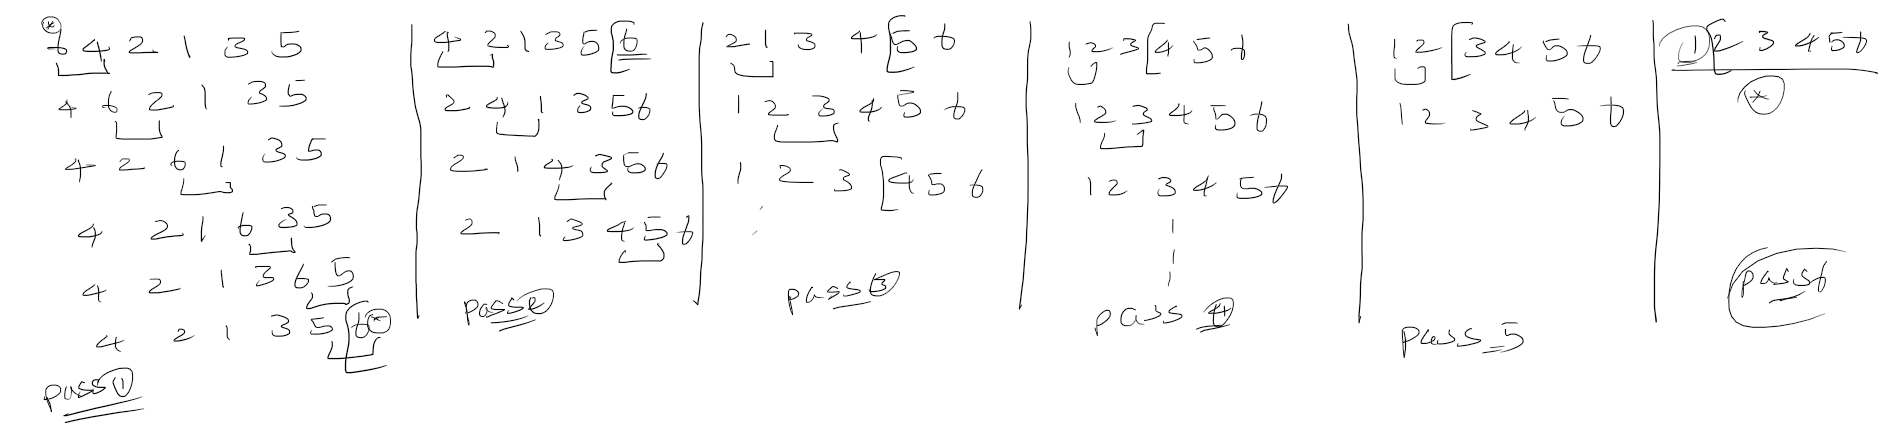 *
6 4 2 1 3 5
4 6 2 1 3 5
4 2 6 1 3 5
4 2 1 6 3 5
4 2 1 3 6 5
4 2 1 3 5 [6 *
pass 1
4 2 1 3 5 [6
2 4 1 3 5 6
2 1 4 3 5 6
2 1 3 4 5 6
pass 2
2 1 3 4 [5 6
1 2 3 4 5 6
1 2 3 [4 5 6
pass 3
1 2 3 [4 5 6
1 2 3 4 5 6
1 2 3 4 5 6
pass 4
1 2 [3 4 5 6
1 2 3 4 5 6
pass - 5
1 [2 3 4 5 6
*
pass 6